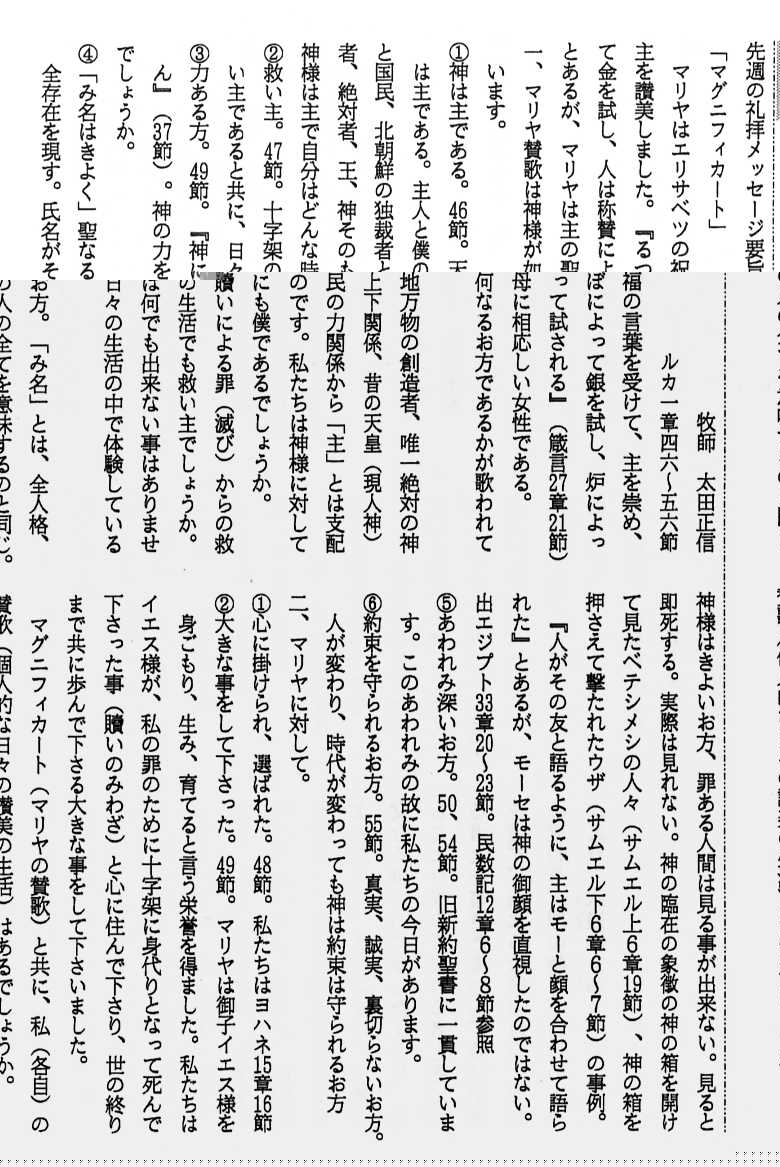 先週の礼拝メッセージ要旨　牧師　太田正信
「マグニフィカート」　ルカ一章四六～五六節
マリヤはエリサベツの祝福の言葉を受けて、主を崇め、
主を讃美しました。『るつぼによって銀を試し、炉によっ
て金を試し、人は称賛によって試される』（箴言27章21節）
とあるが、マリヤは主の聖母に相応しい女性である。
一、マリヤ賛歌は神様が如何なるお方であるかが歌われて
います。
①神は主である。46節。天地万物の創造者、唯一絶対の神
は主である。主人と僕の上下関係、昔の天皇（現人神）
と国民、北朝鮮の独裁者と民の力関係から「主」とは支配
者、絶対者、王、神そのものです。私たちは神様に対して
神様は主で自分はどんな時にも僕であるでしょうか。
②救い主。47節。十字架の贖いによる罪（滅び）からの救
い主であると共に、日々の生活でも救い主でしょうか。
③力ある方。49節。『神には何でも出来ない事はありませ
ん』（37節）。神の力を日々の生活の中で体験している
でしょうか。
④「み名はきよく」聖なるお方。「み名」とは、全人格、
全存在を現す。氏名がその人の全てを意味するのと同じ。
神様はきよいお方、罪ある人間は見る事が出来ない。見ると
即死する。実際は見れない。神の臨在の象徴の神の箱を開け
て見たベテシメシの人々（サムエル上6章19節）、神の箱を
押さえて撃たれたウザ（サムエル下6章6～7節）の事例。
『人がその友と語るように、主はモーと顔を合わせて語ら
れた』とあるが、モーセは神の御顔を直視したのではない。
出エジプト33章20～23節。民数記12章6～8節参照
⑤あわれみ深いお方。50、54節。旧新約聖書に一貫していま
す。このあわれみの故に私たちの今日があります。
⑥約束を守られるお方。55節。真実、誠実、裏切らないお方。
人が変わり、時代が変わっても神は約束は守られるお方
二、マリヤに対して。
①心に掛けられ、選ばれた。48節。私たちはヨハネ15章16節
②大きな事をして下さった。49節。マリヤは御子イエス様を
身ごもり、生み、育てると言う栄誉を得ました。私たちは
イエス様が、私の罪のために十字架に身代りとなって死んで
下さった事（贖いのみわざ）と心に住んで下さり、世の終り
まで共に歩んで下さる大きな事をして下さいました。
マグニフィカート（マリヤの賛歌）と共に、私（各自）の
賛歌（個人的な日々の讃美の生活）はあるでしょうか。